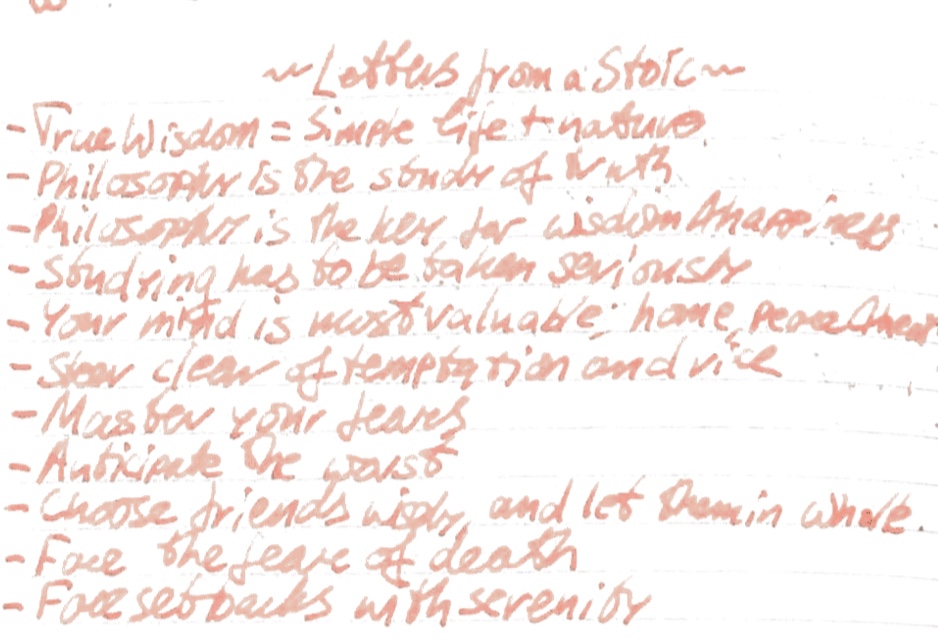 ~Letters from a Stoic~
- True Wisdom = Simple life + nature
- Philosophy is the study of truth
- Philosophy is the key for wisdom & happiness
- Studying has to be taken seriously
- Your mind is most valuable; home,
- Stear clear of temptation and vice
- Master your fears
- Anticipate the worst
- Choose friends wisely, and let them in whole.
- Face the feare of death
- Face setbacks with serenity